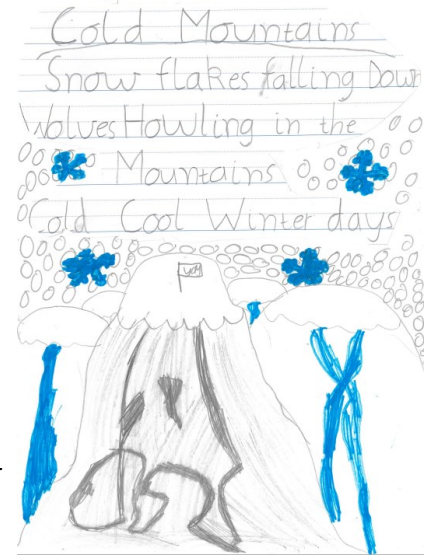 Cold Mountains
Snow flakes falling Down
Wolves Howling in the
Mountains
Cold Cool Winter days